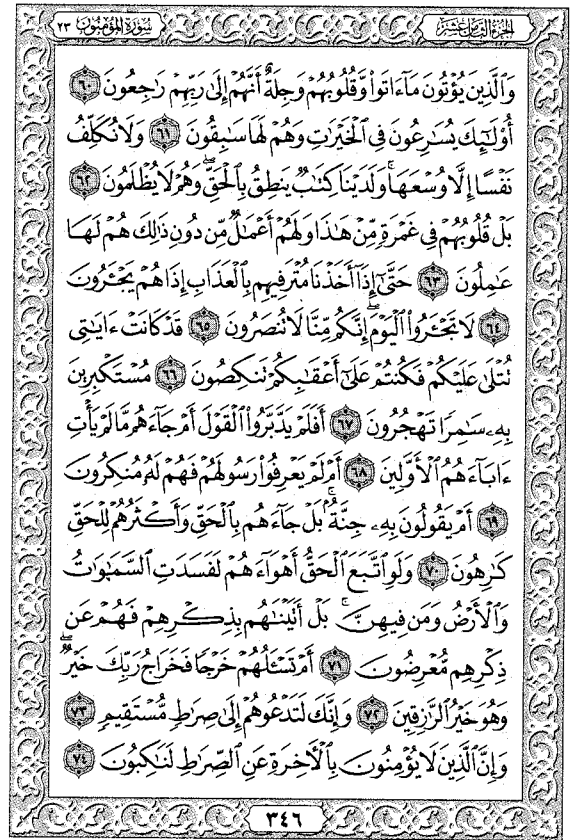 سُورَةُ المُؤْمِنُون ٢٣
الجُزْءُ الثَّامِنُ عَشَرَ
وَٱلَّذِينَ يُؤْتُونَ مَآءَاتَوا۟ وَّقُلُوبُهُمْ وَجِلَةٌ أَنَّهُمْ إِلَىٰ رَبِّهِمْ رَٰجِعُونَ ٦٠
أُو۟لَٰٓئِكَ يُسَٰرِعُونَ فِى ٱلْخَيْرَٰتِ وَهُمْ لَهَا سَٰبِقُونَ ٦١ وَلَا نُكَلِّفُ
نَفْسًا إِلَّا وُسْعَهَا ۚ وَلَدَيْنَا كِتَٰبٌ يَنطِقُ بِٱلْحَقِّ ۖ وَهُمْ لَا يُظْلَمُونَ ٦٢
بَلْ قُلُوبُهُمْ فِى غَمْرَةٍ مِّنْ هَٰذَا وَلَهُمْ أَعْمَٰلٌ مِّن دُونِ ذَٰلِكَ هُمْ لَهَا
عَٰمِلُونَ ٦٣ حَتَّىٰٓ إِذَآ أَخَذْنَا مُتْرَفِيهِم بِٱلْعَذَابِ إِذَا هُمْ يَجْـَٔرُونَ
٦٤ لَا تَجْـَٔرُوا۟ ٱلْيَوْمَ ۖ إِنَّكُم مِّنَّا لَا تُنصَرُونَ ٦٥ قَدْ كَانَتْ ءَايَٰتِى
تُتْلَىٰ عَلَيْكُمْ فَكُنتُمْ عَلَىٰٓ أَعْقَٰبِكُمْ تَنكِصُونَ ٦٦ مُسْتَكْبِرِينَ
بِهِۦ سَٰمِرًا تَهْجُرُونَ ٦٧ أَفَلَمْ يَدَّبَّرُوا۟ ٱلْقَوْلَ أَمْ جَآءَهُم مَّا لَمْ يَأْتِ
ءَابَآءَهُمُ ٱلْأَوَّلِينَ ٦٨ أَمْ لَمْ يَعْرِفُوا۟ رَسُولَهُمْ فَهُمْ لَهُۥ مُنكِرُونَ
٦٩ أَمْ يَقُولُونَ بِهِۦ جِنَّةٌۢ ۚ بَلْ جَآءَهُم بِٱلْحَقِّ وَأَكْثَرُهُمْ لِلْحَقِّ
كَٰرِهُونَ ٧٠ وَلَوِ ٱتَّبَعَ ٱلْحَقُّ أَهْوَآءَهُمْ لَفَسَدَتِ ٱلسَّمَٰوَٰتُ
وَٱلْأَرْضُ وَمَن فِيهِنَّ ۚ بَلْ أَتَيْنَٰهُم بِذِكْرِهِمْ فَهُمْ عَن
ذِكْرِهِم مُّعْرِضُونَ ٧١ أَمْ تَسْـَٔلُهُمْ خَرْجًا فَخَرَاجُ رَبِّكَ خَيْرٌ ۖ
وَهُوَ خَيْرُ ٱلرَّٰزِقِينَ ٧٢ وَإِنَّكَ لَتَدْعُوهُمْ إِلَىٰ صِرَٰطٍ مُّسْتَقِيمٍ ٧٣
وَإِنَّ ٱلَّذِينَ لَا يُؤْمِنُونَ بِٱلْأَخِرَةِ عَنِ ٱلصِّرَٰطِ لَنَٰكِبُونَ ٧٤
٣٤٦